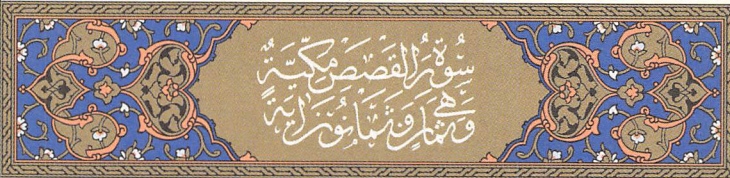 سُورَةُ الْقَصَصِ مَكِّيَّةٌ
وَهِيَ ثَمَانٍ وَثَمَانُونَ آيَةً